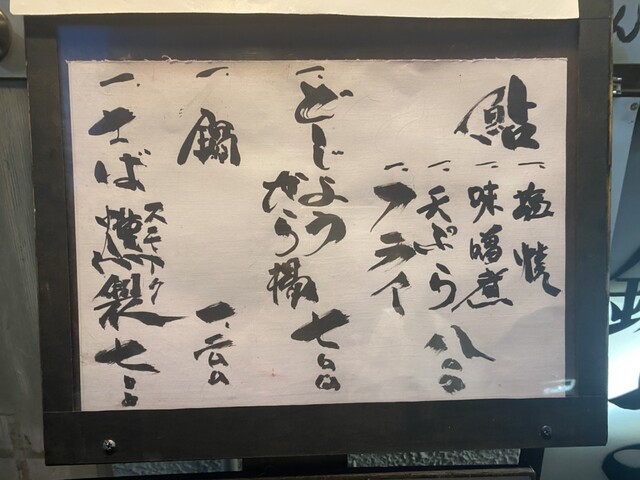 鮎
一、塩焼
一、味噌煮
一、天ぷら 八〇〇
一、フライ
一、どじょう
から揚 七〇〇
一、鍋 一、二〇〇
一、さば燻製 七〇〇
スモーク